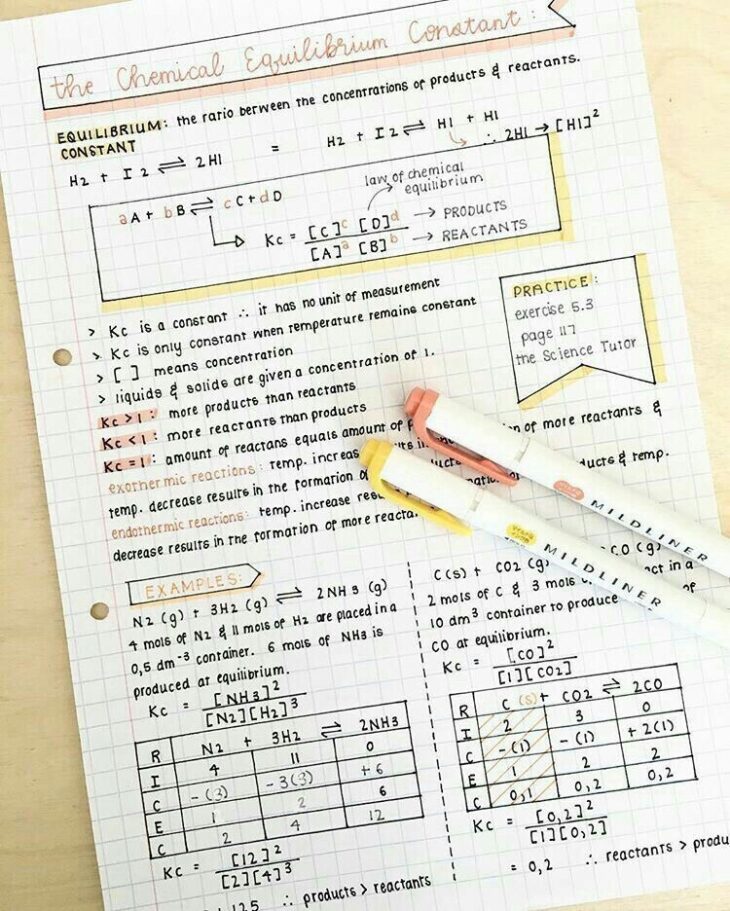 the Chemical Equilibrium Constant:
EQUILIBRIUM: the ratio between the concentrations of products & reactants.
CONSTANT
H2 + I2 ⇌ 2HI = H2 + I2 ⇌ HI + HI
∴ 2HI → [HI]²
aA + bB ⇌ cC + dD
law of chemical
equilibrium
Kc = [C]ᶜ [D]ᵈ → PRODUCTS
[A]ᵃ [B]ᵇ → REACTANTS
> Kc is a constant ∴ it has no unit of measurement
> Kc is only constant when temperature remains constant
> [ ] means concentration
> liquids & solids are given a concentration of 1.
Kc > 1: more products than reactants
Kc < 1: more reactants than products
Kc = 1: amount of reactans equals amount of
exothermic reactions: temp. increas of more reactants &
temp. decrease results in the formation & temp.
endothermic reactions: temp. increase
decrease results in the formation of more
PRACTICE:
exercise 5.3
page 117
the Science Tutor
MILDLINER
MILDLINER
EXAMPLES:
N2 (g) + 3H2 (g) ⇌ 2NH3 (g)
4 mols of N2 & 11 mols of H2 are placed in a
0,5 dm⁻³ container. 6 mols of NH3 is
produced at equilibrium.
Kc = [NH3]²
[N2][H2]³
R N2 + 3H2 ⇌ 2NH3
I 4 11 0
C -(3) -3(3) +6
E 1 2 6
C 2 4 12
Kc = [12]²
[2][4]³
125 ∴ products > reactants
C(s) + CO2 (g) CO (g)
2 mols of C & 3 mols in a
10 dm³ container to produce of
CO at equilibrium.
Kc = [CO]²
[1][CO2]
R C (s) + CO2 ⇌ 2CO
I 2 3 0
C -(1) -(1) +2(1)
E 1 2 2
C 0,1 0,2 0,2
Kc = [0,2]²
[1][0,2]
= 0,2 ∴ reactants > produ